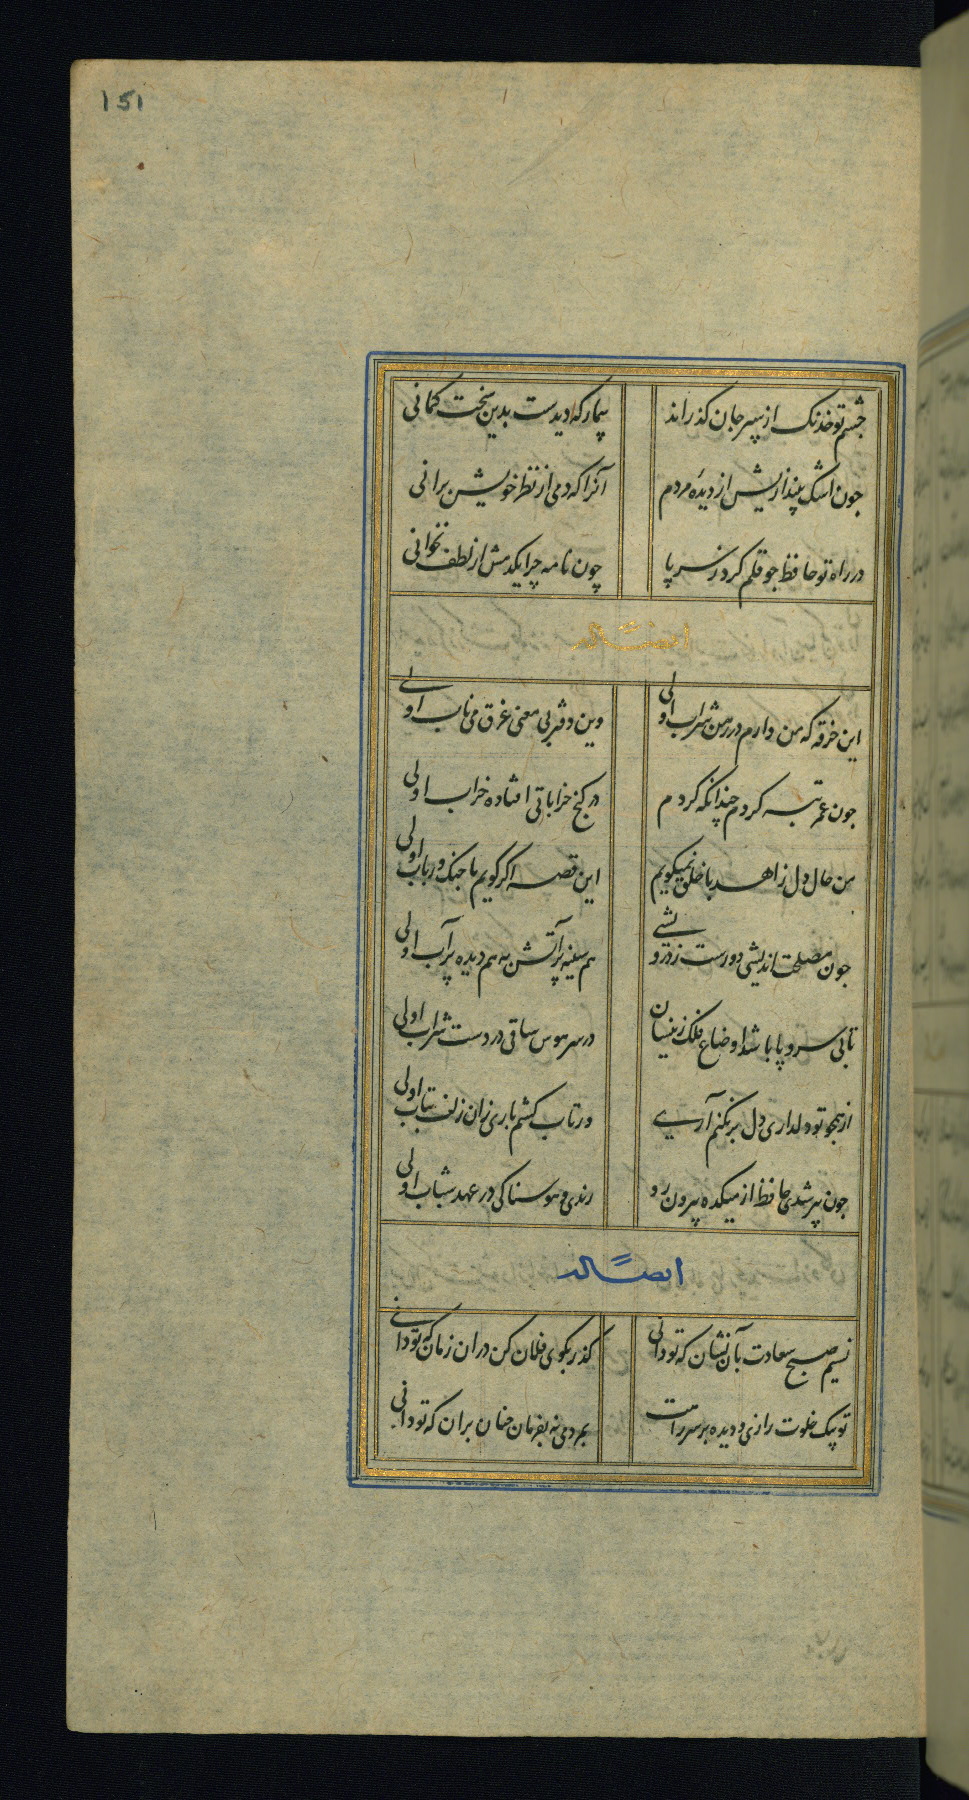 151
چشم تو خدنک از سپر جان کذراند بیمار که دیدست بدین سخت کمانی
جون اشک بیندازیش از دیدهٔ مردم آنرا که دمی از نظر خویش برانی
در راه تو حافظ جو قلم کرد ز سر پا چون نامه چرا یکدمش از لطف نخوانی
ایضاً له
این خرقه که من دارم در رهن شراب اولی وین دفتر بی معنی غرق می ناب اولی
جون عمر تبه کردم چندانکه نکه کردم در کنج خراباتی افتاده خراب اولی
من حال دل زاهد با خلق نمیکویم این قصه اکر کویم با جنک و رباب اولی
جون مصلحت اندیشی دورست ز درویشی هم سینه پر آتش به هم دیده پر آب اولی
تا بی سر و پا باشد اوضاع فلک زینسان در سر هوس ساقی در دست شراب اولی
از همجو تو دلداری دل بر نکنم آری ور تاب کشم باری زان زلف بتاب اولی
جون پیر شدی حافظ از میکده بیرون رو رندی و هوسناکی در عهد شباب اولی
ایضاً له
نسیم صبح سعادت بآن نشان که تو دانی کذر بکوی فلان کن در ان زمان که تو دانی
تو پیک خلوت رازی و دیده بر سر راهت بمردمی نه بفرمان جنان بران که تو دانی